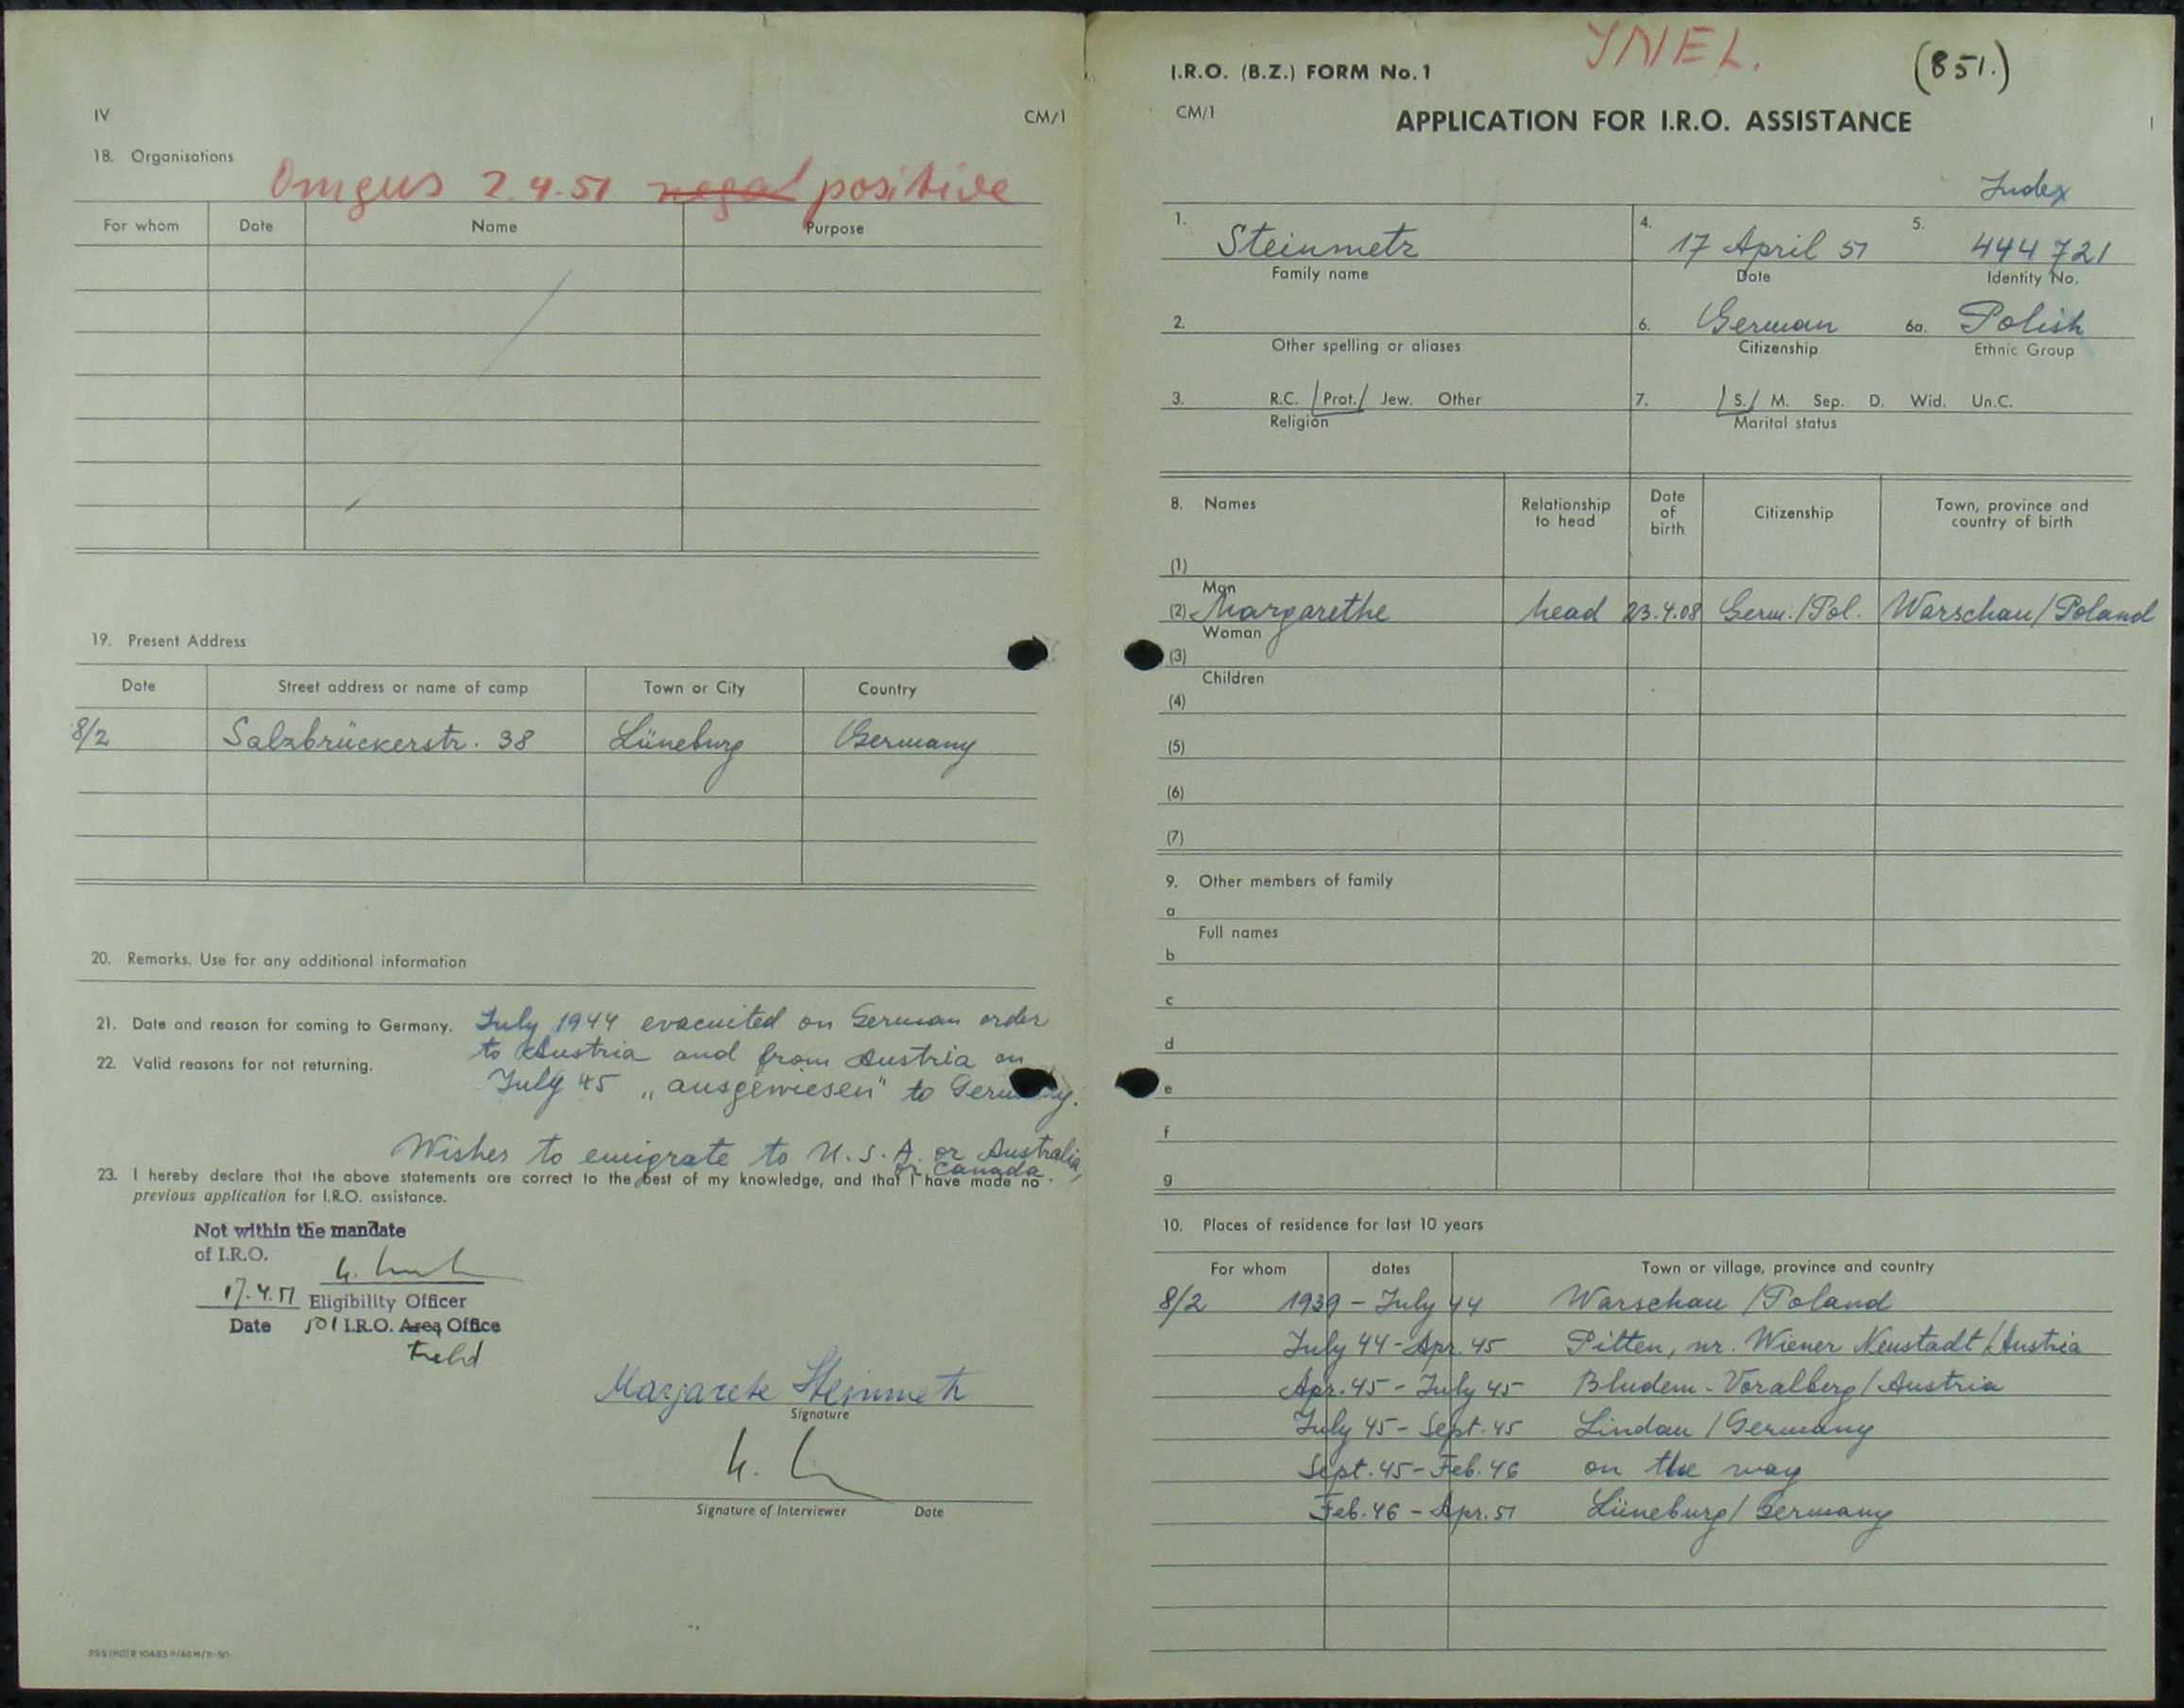 IV
CM/1
18. Organisations
Omgus 2.4.51 negat positive
For whom Date Name Purpose
19. Present Address
Date Street address or name of camp Town or City Country
8/2 Salzbrückerstr. 38 Lüneburg Germany
20. Remarks. Use for any additional information
21. Date and reason for coming to Germany. July 1944 evacuited on German order
to Austria and from Austria on
22. Valid reasons for not returning.
July 45 „ausgewiesen" to Germany.
Wishes to emigrate to U.S.A. or Australia,
or Canada.
23. I hereby declare that the above statements are correct to the best of my knowledge, and that I have made no
previous application for I.R.O. assistance.
Not within the mandate
of I.R.O.
17.4.51 Eligibility Officer
Date 501 I.R.O. Area Office
Field
Margarete Steinmetz
Signature
Signature of Interviewer Date
I.R.O. (B.Z.) FORM No. 1
YNEL.
(851.)
CM/1
APPLICATION FOR I.R.O. ASSISTANCE
I
Index
1. Steinmetz 4. 17 April 51 5. 444 721
Family name Date Identity No.
2. 6. German 6a. Polish
Other spelling or aliases Citizenship Ethnic Group
3. R.C. /Prot./ Jew. Other 7. /S./ M. Sep. D. Wid. Un.C.
Religion Marital status
8. Names Relationship to head Date of birth Citizenship Town, province and country of birth
(1)
Man
(2) Margarethe head 23.4.08 Germ./Pol. Warschau/Poland
Woman
(3)
Children
(4)
(5)
(6)
(7)
9. Other members of family
a
Full names
b
c
d
e
f
g
10. Places of residence for last 10 years
For whom dates Town or village, province and country
8/2 1939 - July 44 Warschau /Poland
July 44 - Apr. 45 Pitten, nr. Wiener Neustadt/Austria
Apr. 45 - July 45 Bludem - Voralberg/Austria
July 45 - Sept. 45 Lindau /Germany
Sept. 45 - Feb. 46 on the way
Feb. 46 - Apr. 51 Lüneburg/Germany